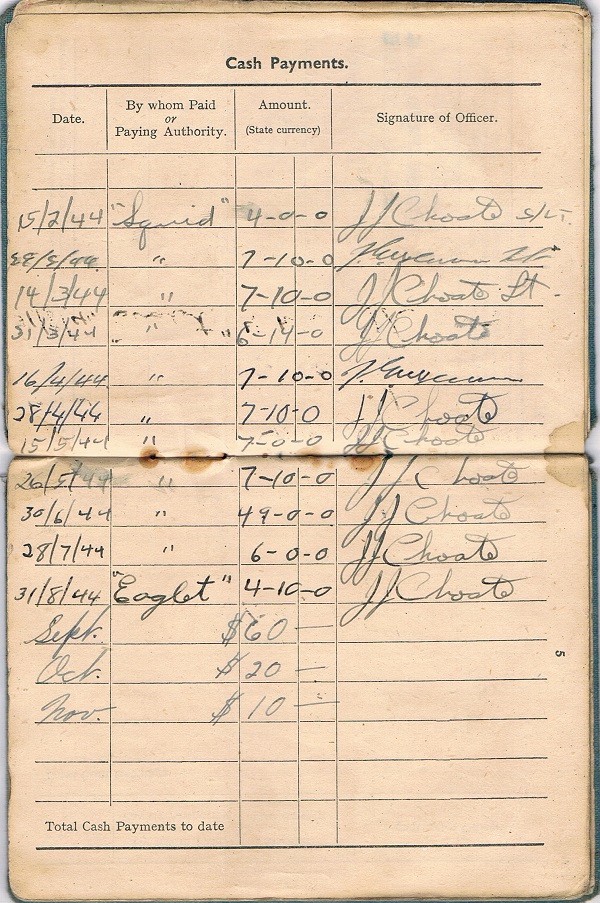 Cash Payments.
Date. By whom Paid or Paying Authority. Amount. (State currency) Signature of Officer.
15/2/44 "Squid" 4-0-0 JJ Choate S/LT.
" 7-10-0
14/3/44 " 7-10-0 JJ Choate Lt.
31/3/44 " 6-14-0 JJ Choate
16/4/44 " 7-10-0
28/4/44 " 7-10-0 JJ Choate
15/5/44 " 7-0-0 JJ Choate
26/5/44 " 7-10-0 JJ Choate
30/6/44 " 49-0-0 JJ Choate
28/7/44 " 6-0-0 JJ Choate
31/8/44 "Eaglet" 4-10-0 JJ Choate
Sept. $60 —
Oct. $20 —
Nov. $10 —
5
Total Cash Payments to date